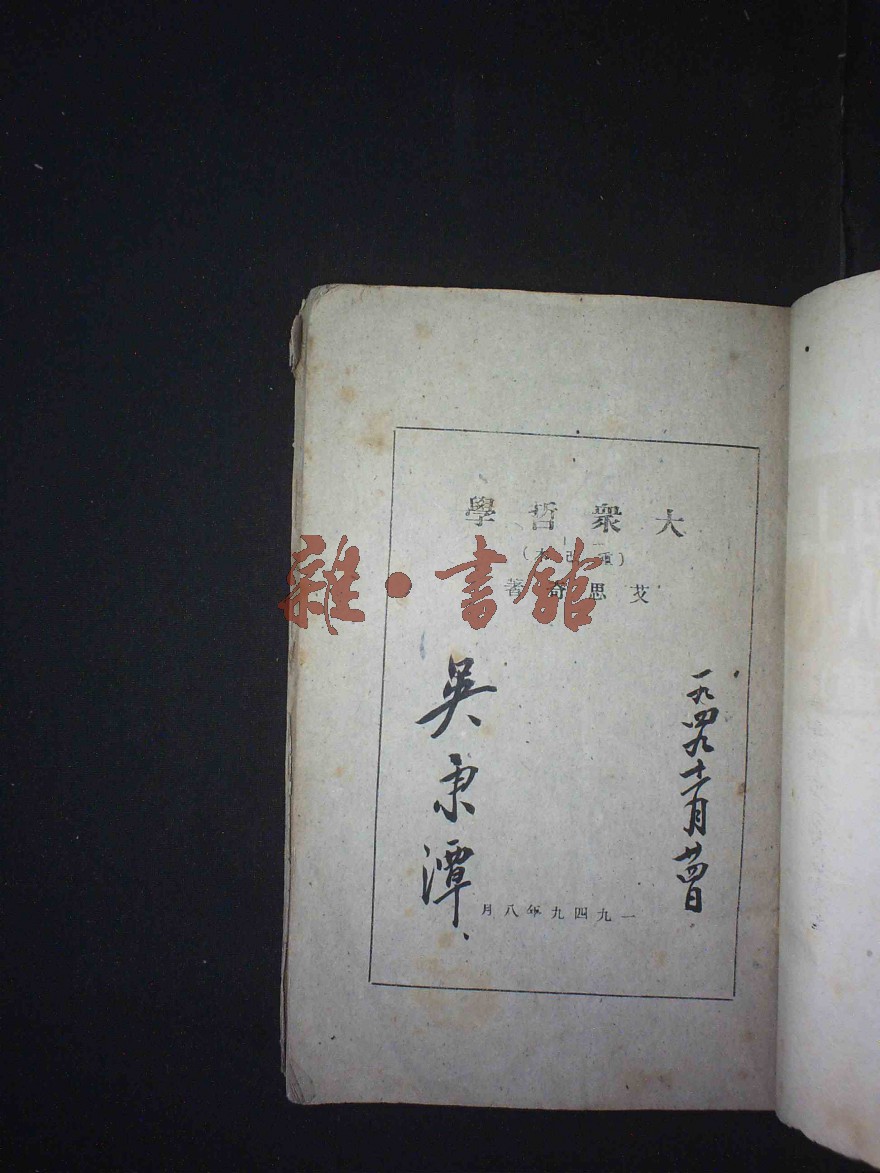 大衆哲學
(重改本)
艾思奇著
雜·書館
一九四九十一月廿四日
吳秉潭
一九四九年八月